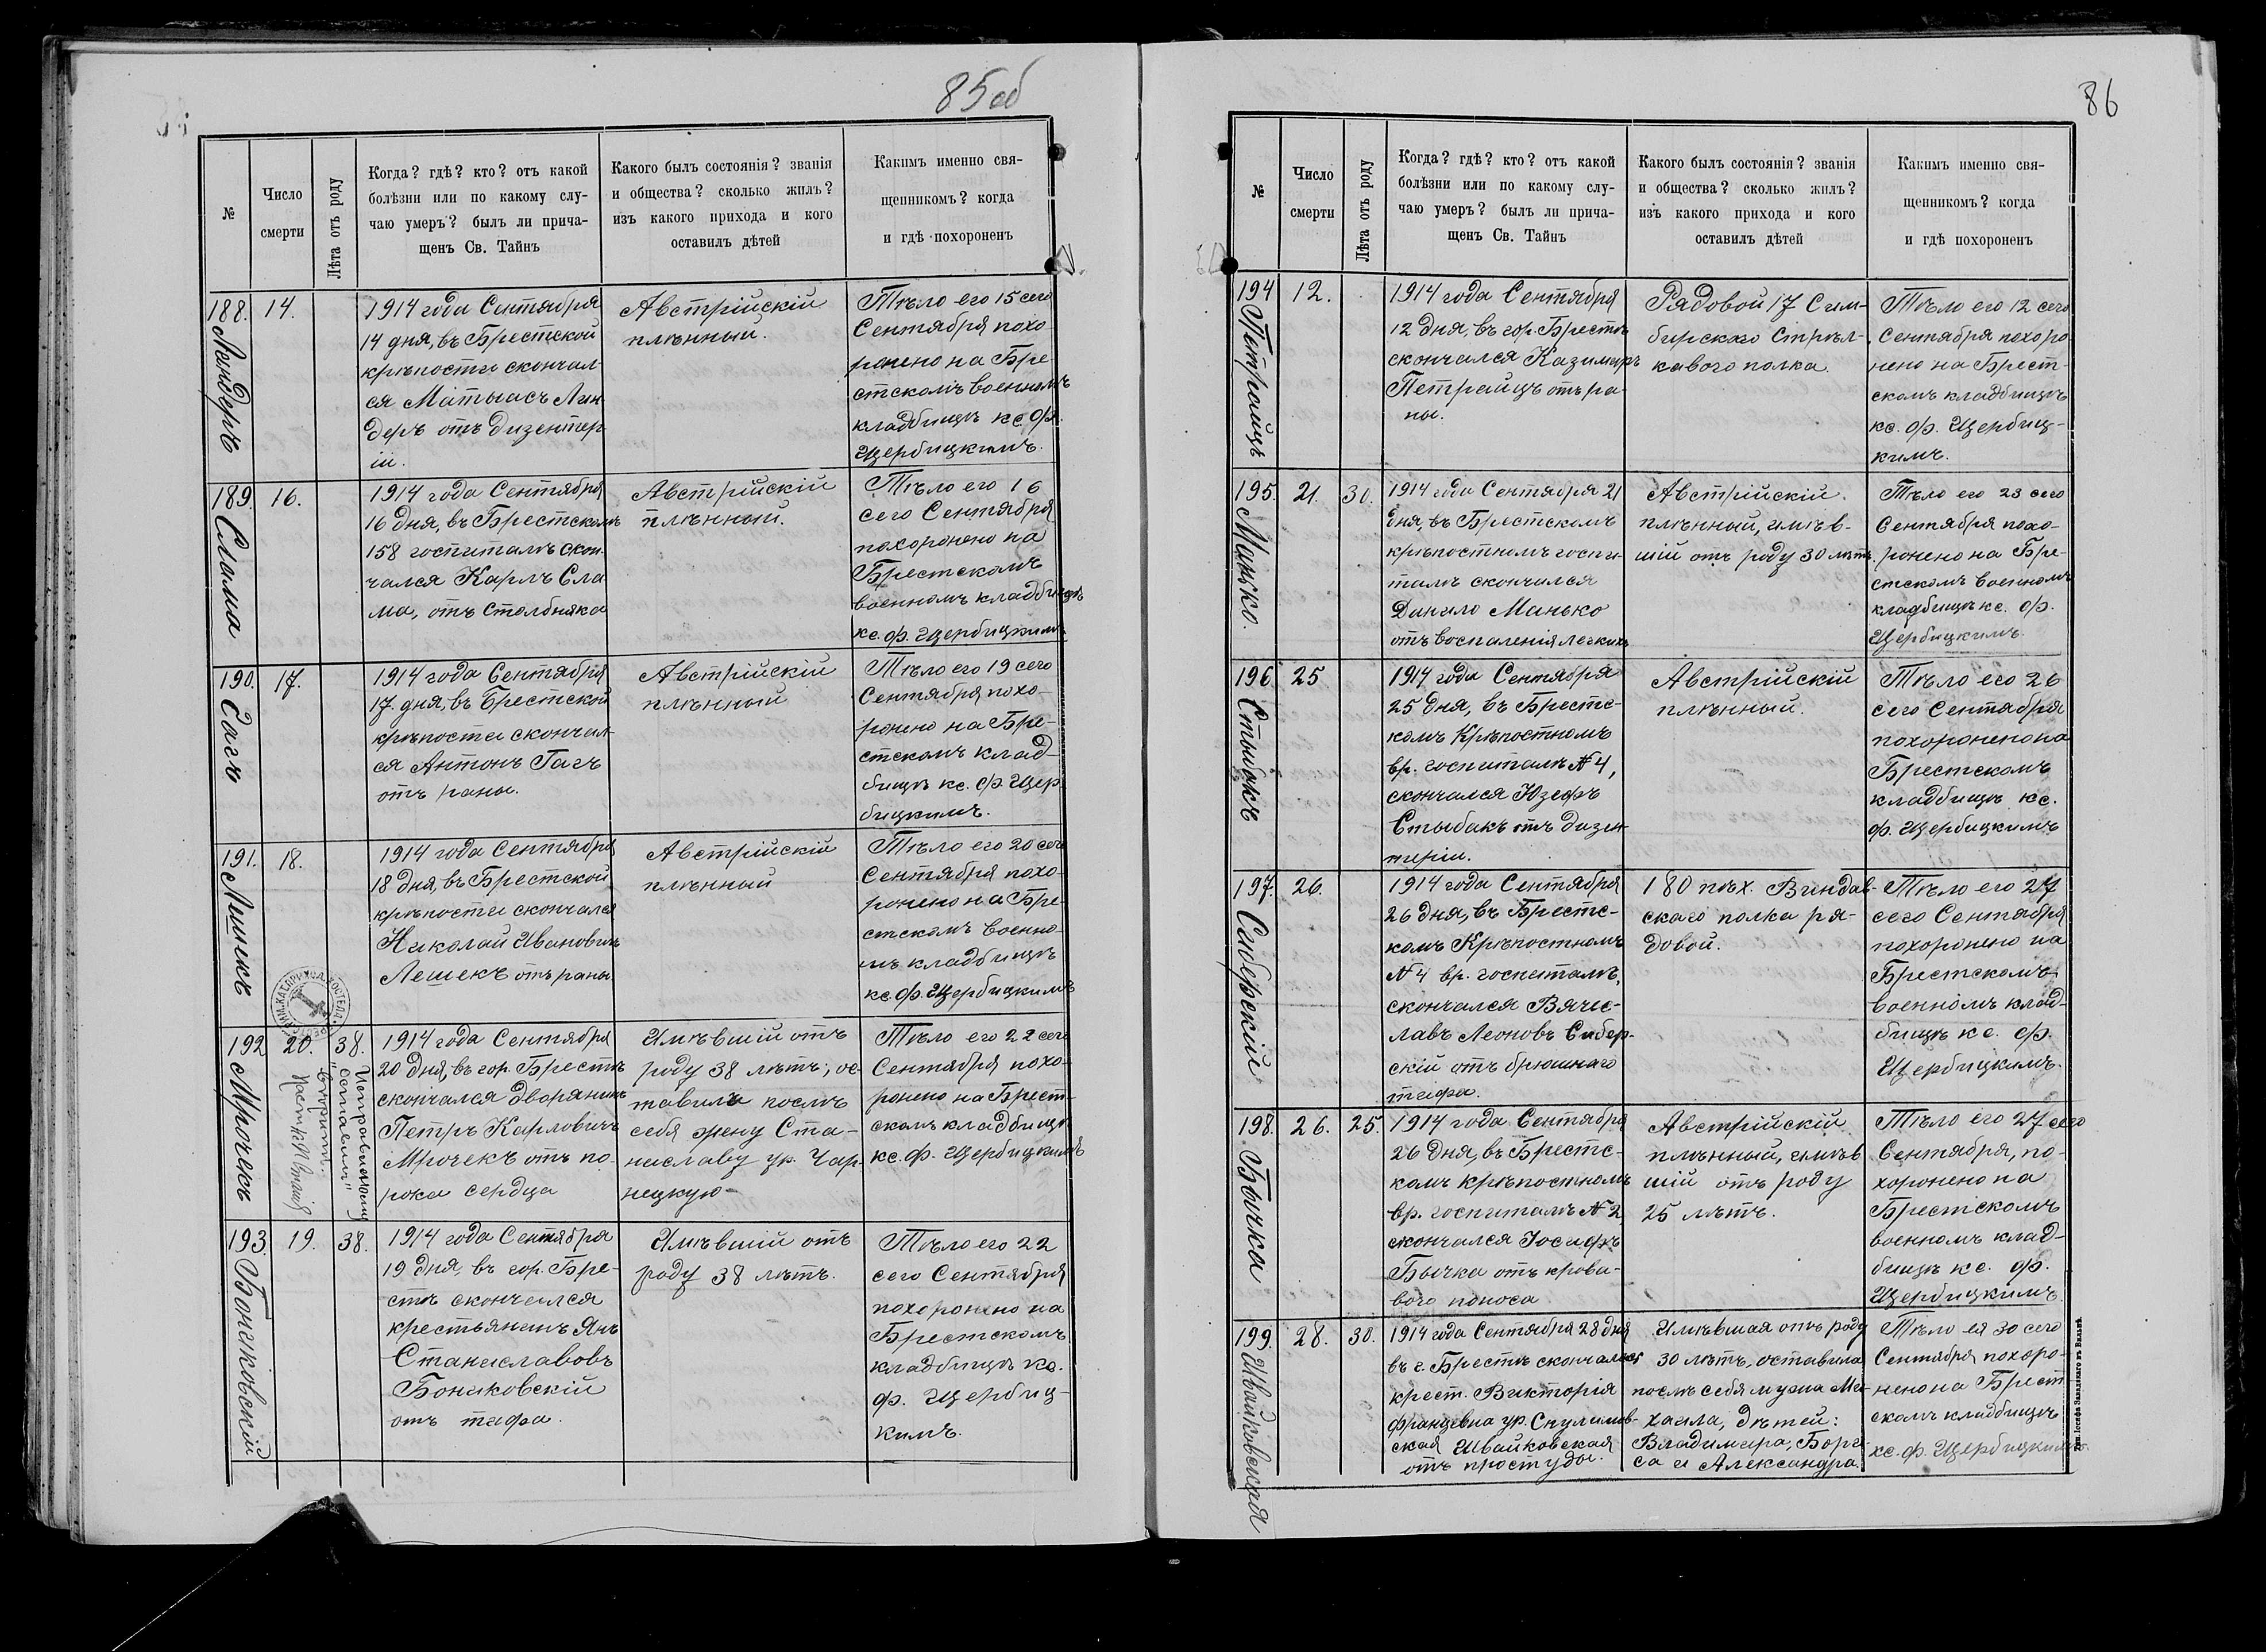 85 об
№
Число
смерти
Лѣта отъ роду
Когда? гдѣ? кто? отъ какой
болѣзни или по какому слу-
чаю умеръ? былъ ли прича-
щенъ Св. Тайнъ
Какого былъ состоянія? званія
и общества? сколько жилъ?
изъ какого прихода и кого
оставилъ дѣтей
Какимъ именно свя-
щенникомъ? когда
и гдѣ похороненъ
188.
Линдеръ
14.
1914 года Сентября
14 дня, въ Брестской
крѣпости скончал-
ся Матыасъ Лин
деръ отъ дизентер
іи.
Австрійскій
плѣнный.
Тѣло его 15 сего
Сентября похо-
ронено на Бре-
стскомъ военномъ
кладбищѣ кс. Ф.
Щербицкимъ.
189.
Слама
16.
1914 года Сентября
16 дня, въ Брестскомъ
158 госпиталѣ скон-
чался Карлъ Сла
ма, отъ столбняка
Австрійскій
плѣнный.
Тѣло его 16
сего Сентября
похоронено на
Брестскомъ
военномъ кладбищѣ
кс. Ф. Щербицкимъ.
190.
Гагъ
17.
1914 года Сентября
17. дня, въ Брестской
крѣпости скончал-
ся Антонъ Гагъ
отъ раны.
Австрійскій
плѣнный
Тѣло его 19 сего
Сентября похо-
ронено на Бре-
стскомъ клад-
бищѣ кс. Ф. Щер
бицкимъ.
191.
Лешекъ
18.
1914 года Сентября
18 дня, въ Брестской
крѣпости скончался
Николай Ивановичъ
Лешекъ отъ раны.
Австрійскій
плѣнный
Тѣло его 20 сего
Сентября похо-
ронено на Бре-
стскомъ военно-
мъ кладбищѣ
кс. Ф. Щербицкимъ
192
Мрочекъ
20.
38.
Исправленному
"оставилъ"
вѣрить.
1914 года Сентября
20 дня, въ гор. Брестѣ
скончался дворянинъ
Петръ Карловичъ
Мрочекъ отъ по-
рока сердца
Имѣвшій отъ
роду 38 лѣтъ, ос-
тавилъ послѣ
себя жену Ста-
ниславу ур. Чар-
нецкую
Тѣло его 22 сего
Сентября похо-
ронено на Брест-
скомъ кладбищѣ
кс. Ф. Щербицкимъ
193.
Бониковскій
19.
38.
1914 года Сентября
19 дня, въ гор. Бре-
стѣ скончался
крестьянинъ Янъ
Станиславовъ
Бониковскій
отъ тифа.
Имѣвшій отъ
роду 38 лѣтъ.
Тѣло его 22
сего Сентября
похоронено на
Брестскомъ
кладбищѣ кс.
Ф. Щербиц-
кимъ.
86
№
Число
смерти
Лѣта отъ роду
Когда? гдѣ? кто? отъ какой
болѣзни или по какому слу-
чаю умеръ? былъ ли прича-
щенъ Св. Тайнъ
Какого былъ состоянія? званія
и общества? сколько жилъ?
изъ какого прихода и кого
оставилъ дѣтей
Какимъ именно свя-
щенникомъ? когда
и гдѣ похороненъ
194
Петрайцъ
12.
1914 года Сентября
12 дня, въ гор. Брестѣ
скончался Казимиръ
Петрайцъ отъ ра-
ны.
Рядовой 17 Сим-
бирскаго Стрѣл-
каваго полка.
Тѣло его 12 сего
Сентября похоро
нено на Брест-
скомъ кладбищѣ
кс. Ф. Щербиц-
кимъ.
195.
Манько.
21.
30.
1914 года Сентября 21
дня, въ Брестскомъ
крѣпостномъ госпи-
талѣ скончался
Данило Манько
отъ воспаленія легкихъ
Австрійскій
плѣнный, имѣв-
шій отъ роду 30 лѣтъ.
Тѣло его 23 сего
Сентября похо-
ронено на Бре-
стскомъ военномъ
кладбищѣ кс. Ф.
Щербицкимъ.
196
Стыбакъ
25
1914 года Сентября
25 дня, въ Брестс-
комъ Крѣпостномъ
вр. госпиталѣ № 4,
скончался Юзефъ
Стыбакъ отъ дизен-
теріи.
Австрійскій
плѣнный.
Тѣло его 26
сего Сентября
похоронено на
Брестскомъ
кладбищѣ кс.
Ф. Щербицкимъ
197.
Сиберскій
26.
1914 года Сентября
26 дня, въ Брестс-
комъ Крѣпостномъ
№ 4 вр. госпиталѣ,
скончался Вячес-
лавъ Леоновъ Сибер-
скій отъ брюшнаго
тифа.
180 пѣх. Виндав-
скаго полка ря-
довой.
Тѣло его 27
сего Сентября
похоронено на
Брестскомъ
военномъ клад-
бищѣ кс. Ф.
Щербицкимъ.
198.
Бычка
26.
25.
1914 года Сентября
26 дня, въ Брестс-
комъ крѣпостномъ
вр. госпиталѣ № 2
скончался Іосифъ
Бычка отъ крова-
ваго поноса.
Австрійскій
плѣнный, имѣв
шій отъ роду
25 лѣтъ.
Тѣло его 27 сего
Сентября, по-
хоронено на
Брестскомъ
военномъ клад-
бищѣ кс. Ф.
Щербицкимъ.
199.
Ивайковская
28.
30.
1914 года Сентября 28 дня
въ г. Брестѣ скончалась
крест. Викторія
Францевна ур. Скулимов-
ская Ивайковская
отъ простуды.
Имѣвшая отъ роду
30 лѣтъ, оставила
послѣ себя мужа Ми-
хаила, дѣтей:
Владимира, Бори-
са и Александра.
Тѣло ея 30 сего
Сентября похоро-
нено на Брест
скомъ кладбищѣ
кс. Ф. Щербицкимъ.
Тип. Іосифа Завадзкаго въ Вильнѣ.